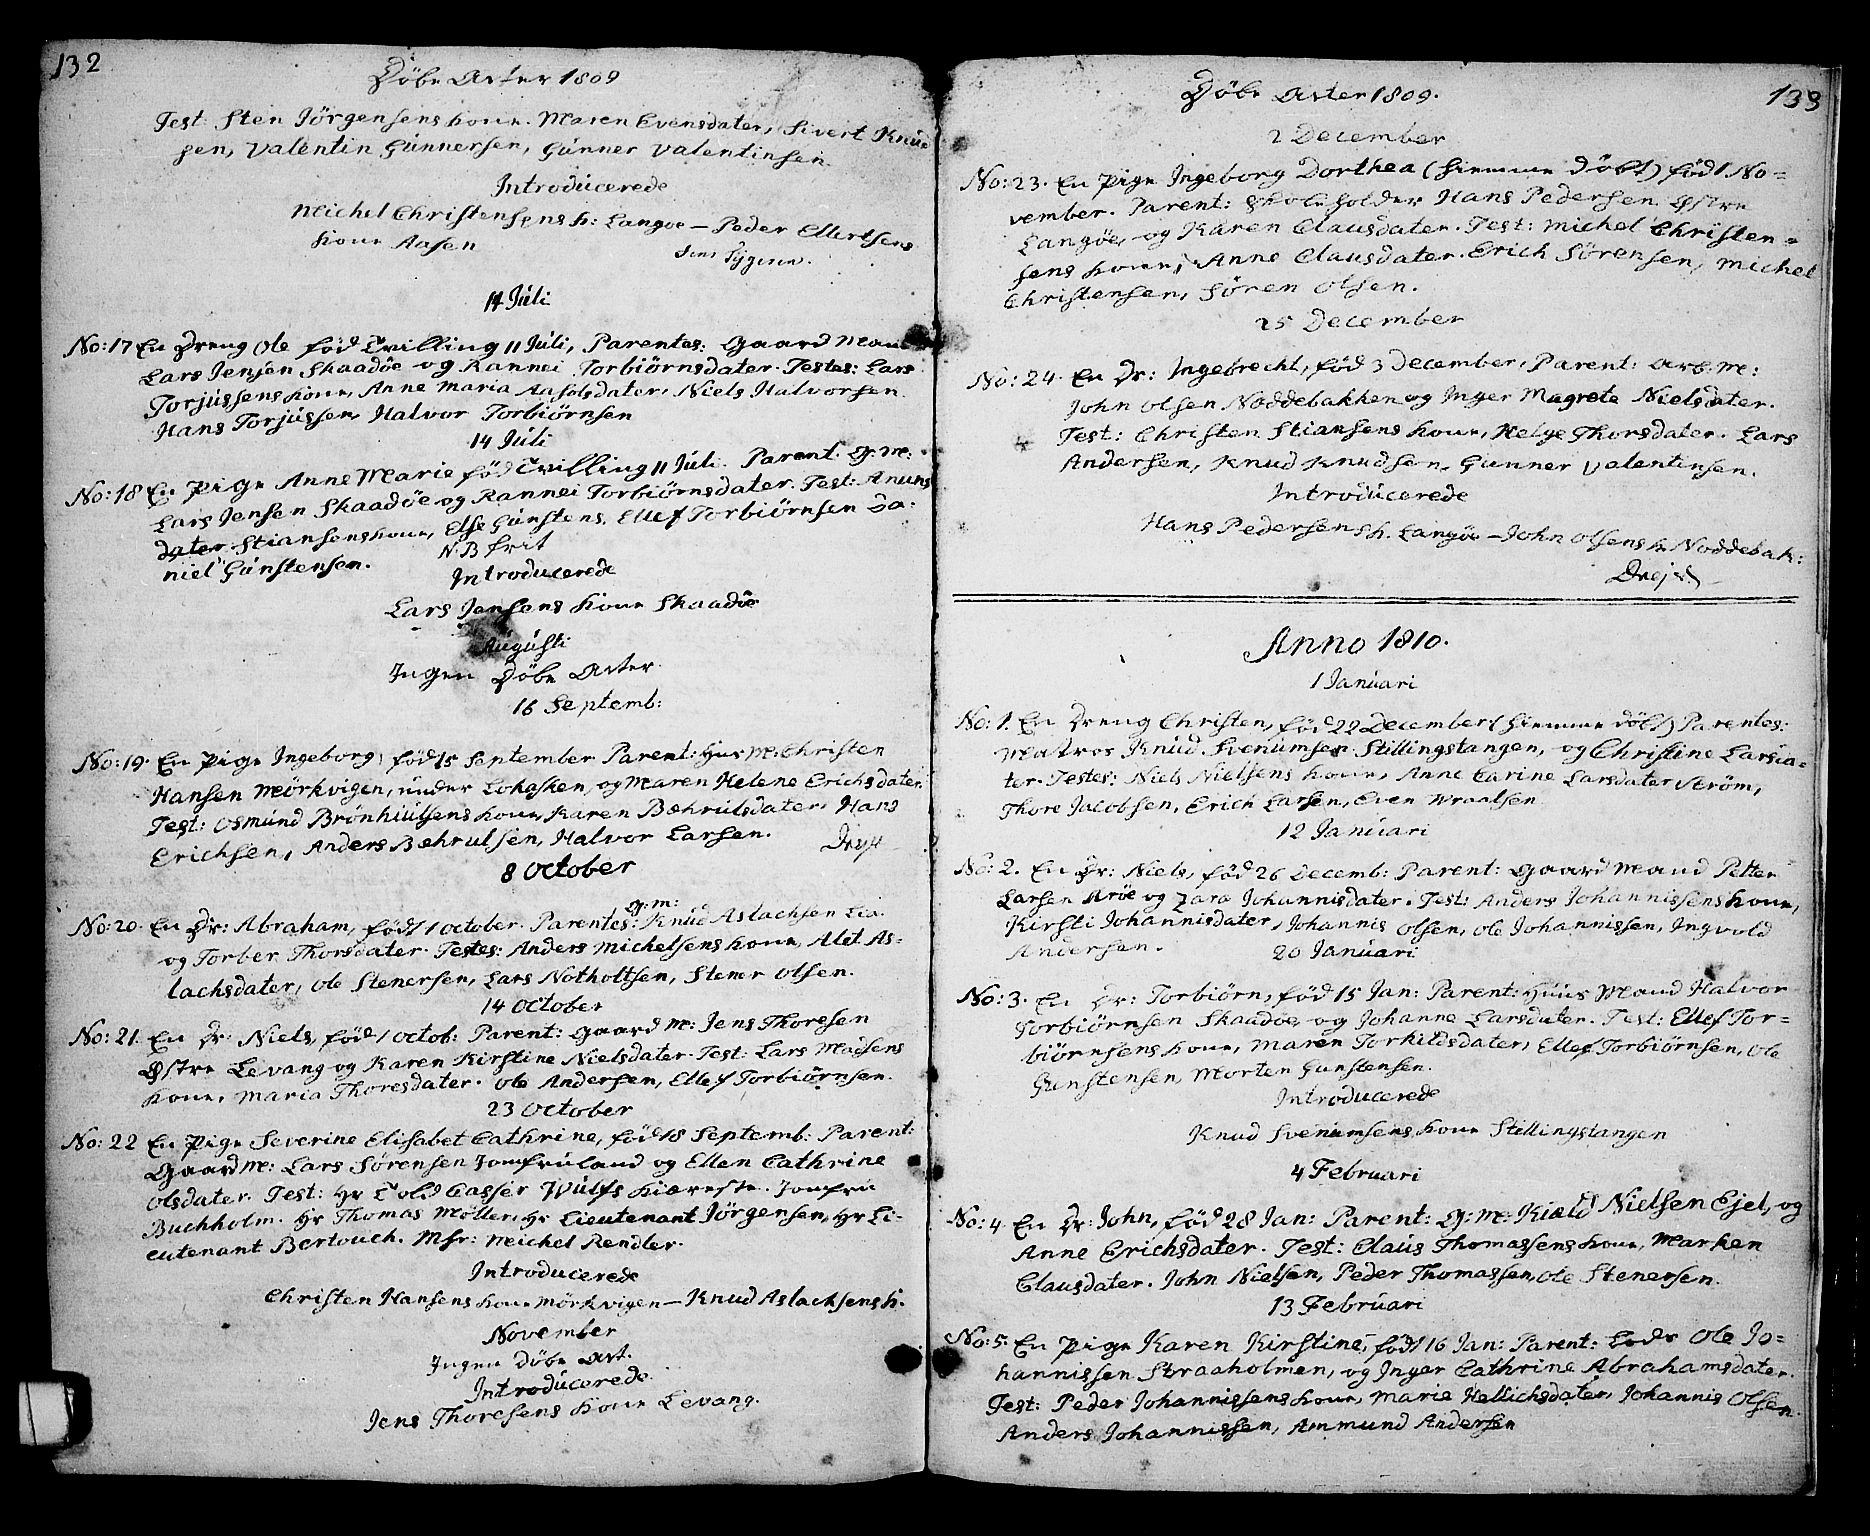 132
Døbe Acter 1809
Test: Sten Jörgensens kone. Maren Evensdater, Sivert Knud
sen, Valentin Gúnnersen, Gúnner Valentinsen.
Introdúcerede
Michel Christensens k: Langöe — Peder Ellertsens
kone Aasen
14 Júli
No: 17 En Dreng Ole fød Tvilling 11 Júli, Parentes: Gaard Mand
Lars Jensen Skaadöe og Rannei Torbiörnsdater. Testes: Lars
Torjússens kone, Anne Maria Aasolsdater, Niels Halvorsen
Hans Torjússen, Halvor Torbiörnsen
14 Júli
No: 18 En Pige Anne Marie fød Tvilling 11 Júli. Parent: G: M:
Lars Jensen Skaadöe og Rannei Torbiörnsdater. Test: Anuns
dater Stiansens kone, Else Gúnstens, Ellef Torbiörnsen Da-
niel Gúnstensen.
N.B frit
Introducerede
Lars Jensens kone Skaadöe
Aúgústi
Ingen Døbe Acter.
16 Septemb:
No: 19. En Pige Ingeborg, fød 15 September Parent: Hus M: Christen
Hansen Mörkvigen, únder Lokasken, og Maren Helene Erichsdater.
Test: Osmúnd Brönhiúlsens kone, Karen Behrulsdater, Hans
Erichsen, Anders Behrulsen, Halvor Larsen.
8 October
No: 20. En Dr: Abraham, fød 1 October. Parentes: G: m: Knúd Aslachsen Lia.
og Torber Thorsdater. Testes: Anders Michelsens kone, Alet As-
lachsdater, Ole Stenersen, Lars Notholtsen, Stener Olsen.
14 October
No: 21. En Dr: Niels, fød 1 Octob: Parent: Gaard M: Jens Thoresen
Østre Levang og Karen Kirstine Nielsdater. Test: Lars Madsens
kone, Maria Thoresdater. Ole Andersen, Ellef Torbiörnsen.
23 October
No: 22 En Pige Severine Elisabet Cathrine, fød 18 Septemb: Parent:
Gaard M: Lars Sørensen Jomfrúland og Ellen Cathrine
Olsdater. Test: Hr Told Casser Wúlfs kiæreste. Jomfrú
Buchholm. Hr Thomas Möller, Hr Lieutenant Jörgensen, Hr Li-
eutenant Bertouch. Msr: Michel Rendler.
Introdúcerede
Christen Hansens kone Mörkvigen — Knud Aslachsens k.
November
Ingen Døbe Act.
Introdúcerede.
Jens Thoresens kone Levang.
133
Døbe Acter 1809.
2 December
No: 23. En Pige Ingeborg Dorthea (hiemme døbt) fød 1 No=
vember. Parent: Skoleholder Hans Pedersen Østre
Langöe, og Karen Clausdater. Test: Michel Christen=
sens kone, Anne Clausdater. Erich Sörensen, Michel
Christensen, Sören Olsen.
25 December
No: 24. En Dr: Ingebrecht, fød 3 December, Parent: Arb. M:
John Olsen Noddebakken og Inger Magrete Nielsdater.
Test: Christen Stiansens kone, Helge Thorsdater. Lars
Andersen, Knud Knudsen, Gunner Valentinsen.
Introdúcerede
Hans Pedersens h. Langöe — John Olsens k. Noddebak:
Anno 1810.
1 Januari
No: 1. En Dreng Christen, fød 22 December (hiemme døbt) Parentes:
Matros Knúd Svenúmsen Stillingstangen, og Christine Larsda-
ter. Testes: Niels Nielsens kone, Anne Carine Larsdater Ström,
Thore Jacobsen, Erich Larsen, Even Wraalsen
12 Januari
No: 2. En Dr: Niels, fød 26 Decemb: Parent: Gaard Mand Petter
Larsen Aröe og Zara Johannisdater. Test: Anders Johannissens kone,
Kirsti Johannisdater, Johannis Olsen, Ole Johannissen, Ingvold
Andersen.
20 Januari
No: 3. En Dr: Torbiörn, fød 15 Jan: Parent: Húus Mand Halvor
Torbiörnsen Skaadöe, og Johanne Larsdater. Test: Ellef Tor=
biörnsens kone, Maren Torkildsdater, Ellef Torbiörnsen, Ole
Gunstensen, Morten Gunstensen.
Introdúcerede
Knud Svenúmsens kone Stillingstangen
4 Februari
No: 4. En Dr: John, fød 28 Jan: Parent: G: M: Kield Nielsen Ejel, og
Anne Erichsdater. Test: Claús Thomassens kone, Marken
Clausdater. John Nielsen, Peder Thomassen, Ole Stenersen.
13 Februari
No: 5. En Pige Karen Kirstine, fød 16 Jan: Parent: Lods Ole Jo=
hannissen Straaholmen, og Inger Cathrine Abrahamsdater.
Test: Peder Johannissens kone, Marie Hellichsdater, Johannis Olsen.
Anders Johannissen, Ammund Andersen